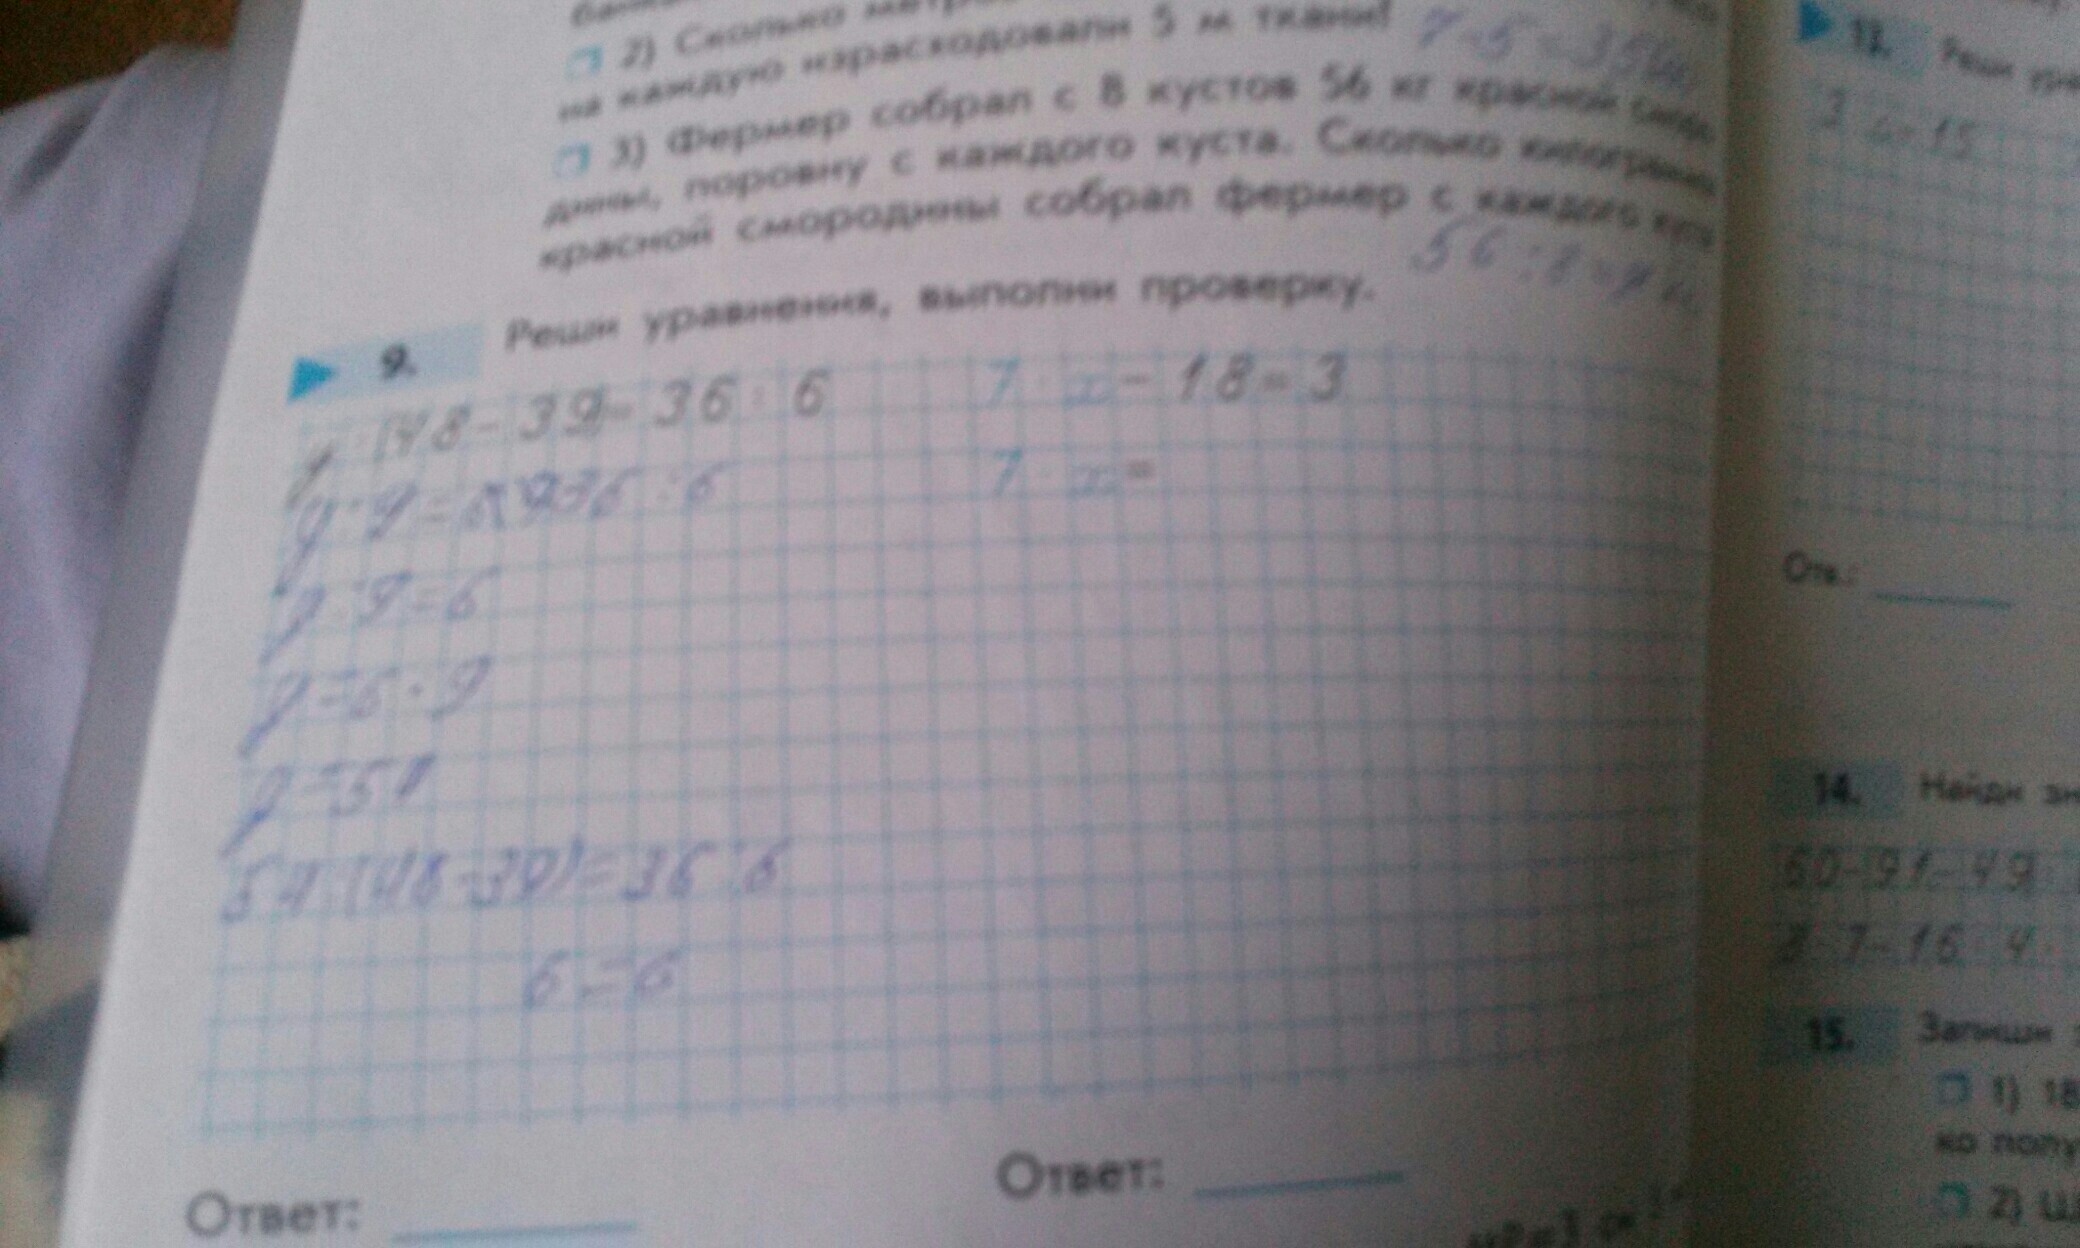 2) Сколько
на каждую израсходовали 5 м ткани? 7·5=35м
3) Фермер собрал с 8 кустов 56 кг красной сморо-
дины, поровну с каждого куста. Сколько килограммов
красной смородины собрал фермер с каждого куста
56:8=7
9. Реши уравнения, выполни проверку.
y : (48 - 39) = 36 : 6
y : 9 = 36 : 6
y : 9 = 6
y = 6 · 9
y = 54
54 : (48 - 39) = 36 : 6
6 = 6
Ответ:
7 · x - 18 = 3
7 · x =
Ответ:
Реши
15
Отв.:
14. Найди
8 · 7 - 16 : 4
15. Запиши
1) 18
ко
2)